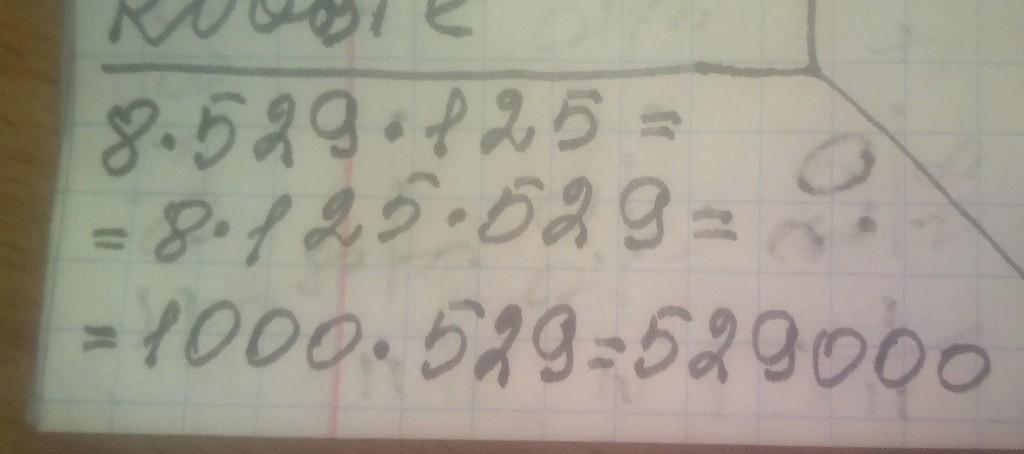 8·529·125=
=8·125·529=
=1000·529=529000